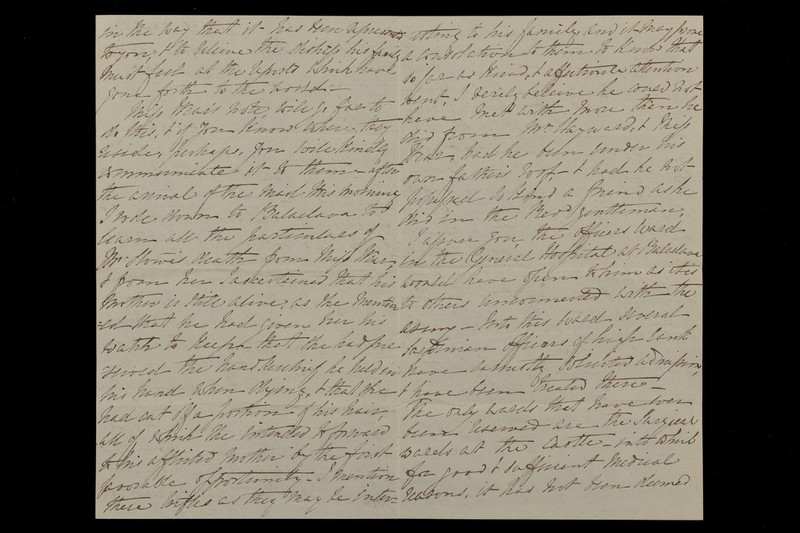 in the way that it has been represented
to you, & to relieve the distress his family
must feel at the reports which have
gone forth to the world.
Miss Wear's note will go far to
do this, & if you know where they
reside, perhaps, you will kindly
communicate it to them - after
the arrival of the Mail this morning
I rode down to Balaclava to
learn all the particulars of
Mr Stowe's death from Miss Wear,
& from her I ascertained that his
Mother is still alive, as she mention
-ed that he had given her his
watch to keep & that she had pre
served the handkerchief he held in
his hand when dying, & that she
had cut off a portion of his hair,
all of which she intended to forward
to his afflicted mother by the first
favorable opportunity. I mention
these trifles as they may be inter-
esting to his family, and it may prove
a consolation to them to know that
so far as kind, & affectionate attention
went, I verily believe he could not
have met with more than he
did from Mr Hayward, & Miss
Wear, had he been under his
own father's roof - & had he not
possessed so kind a friend as he
did in the Revd gentleman,
I assure you the officers ward
in the General Hospital at Balaclava
would have been open to him as it is
to others unconnected with the
army - Into this ward several
Sardinian officers of high rank
have earnestly solicited admission,
& have been treated there -
The only wards that have ever
been reserved are the Surgical
wards at the Castle - into which
for good & sufficient medical
reasons, it has not been deemed